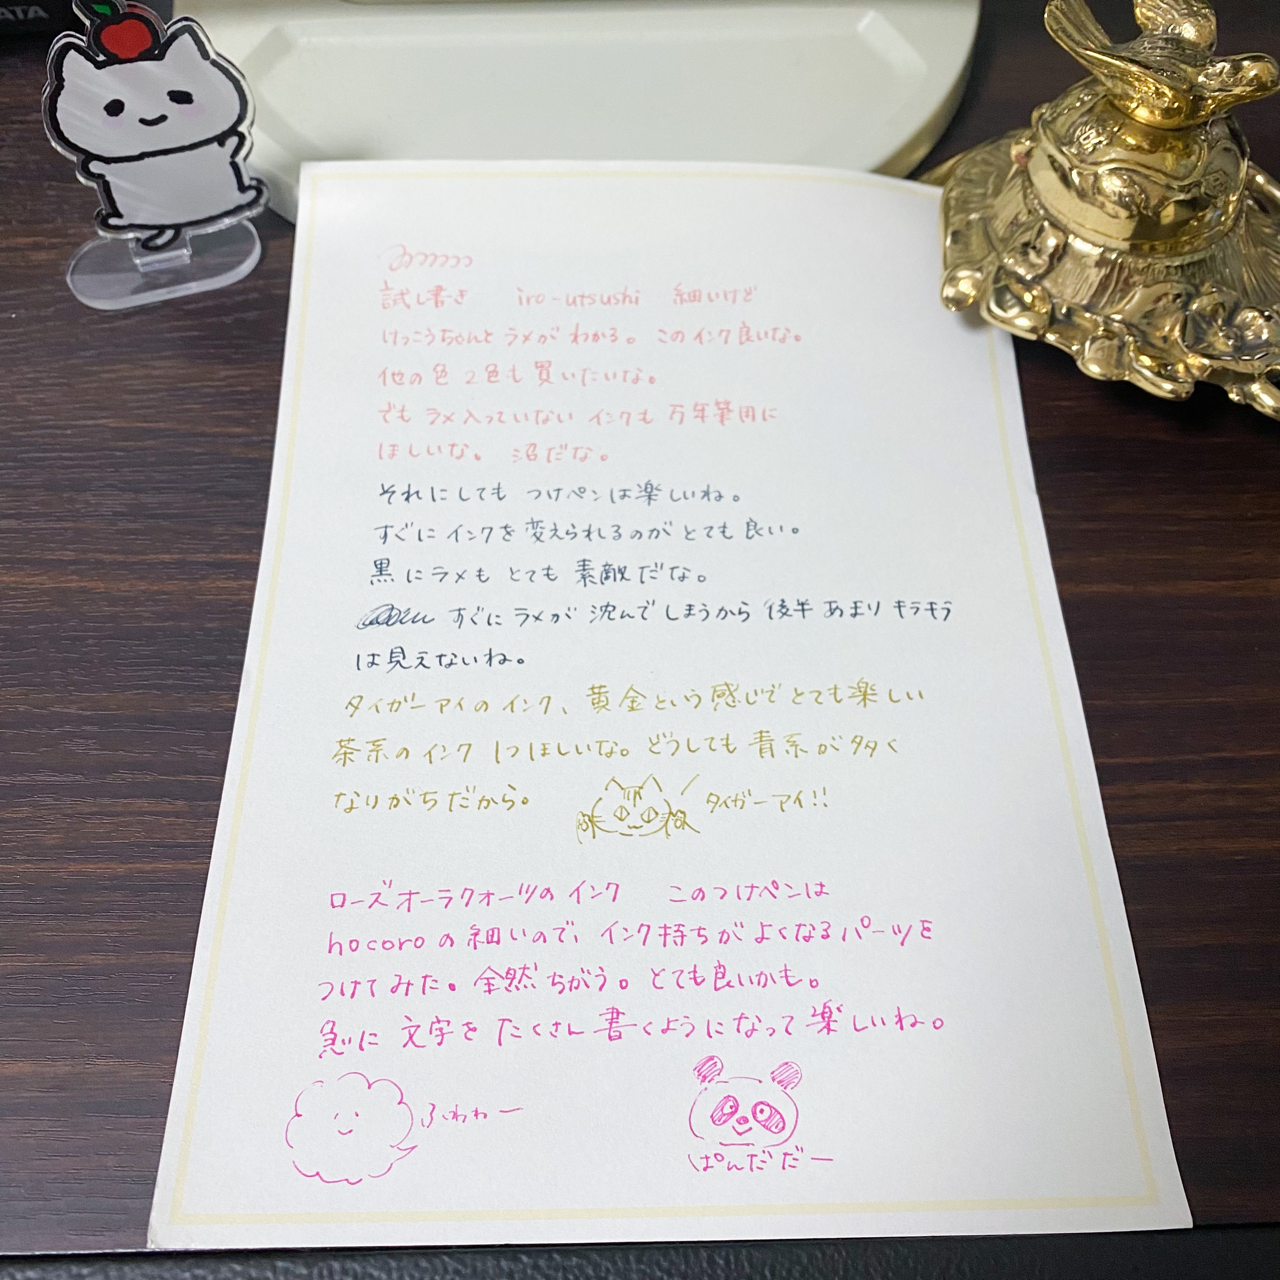 ATA
試し書き iro-utsushi 細いけど
けっこうちゃんとラメがわかる。このインク良いな。
他の色2色も買いたいな。
でもラメ入っていないインクも万年筆用に
ほしいな。沼だな。
それにしてもつけペンは楽しいね。
すぐにインクを変えられるのがとても良い。
黒にラメもとても素敵だな。
すぐにラメが沈んでしまうから後半あまりキラキラ
は見えないね。
タイガーアイのインク、黄金という感じでとても楽しい
茶系のインク1つほしいな。どうしても青系が多く
なりがちだから。
タイガーアイ!!
ローズオーラクオーツのインク このつけペンは
hocoroの細いので、インク持ちがよくなるパーツを
つけてみた。全然ちがう。とても良いかも。
急に文字をたくさん書くようになって楽しいね。
ふわわー
ぱんだだー